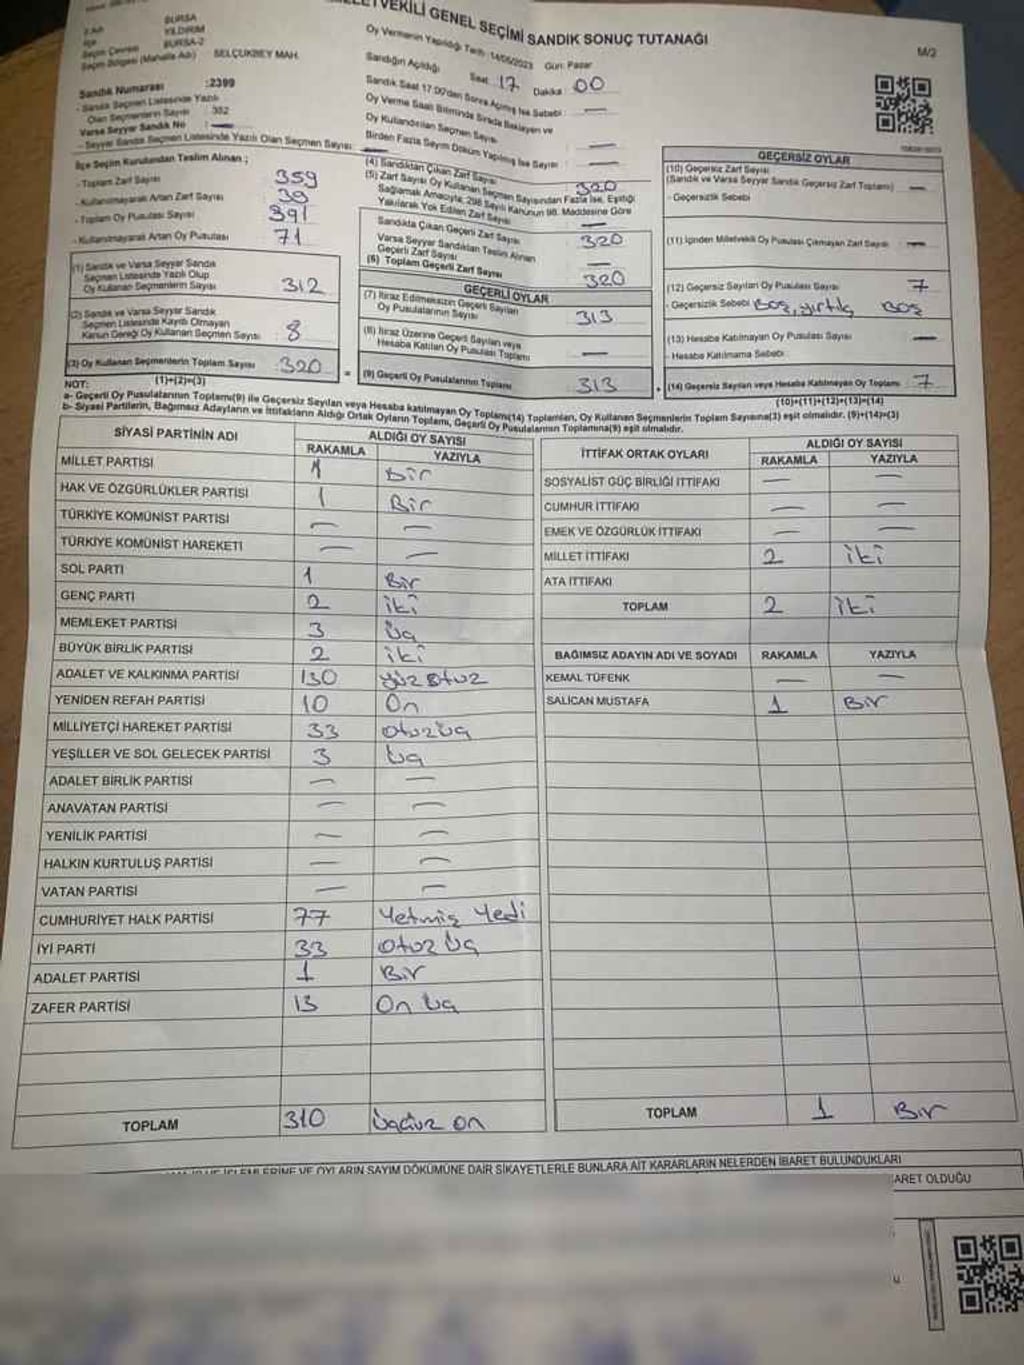 MİLLETVEKİLİ GENEL SEÇİMİ SANDIK SONUÇ TUTANAĞI
M/2
BURSA
İlçe YILDIRIM
Seçim Çevresi BURSA-2
Seçim Bölgesi (Mahalle Adı) SELÇUKBEY MAH.
Sandık Numarası :2399
- Sandık Seçmen Listesinde Yazılı
Olan Seçmenlerin Sayısı : 352
Varsa Seyyar Sandık No —
- Seyyar Sandık Seçmen Listesinde Yazılı Olan Seçmen Sayısı: —
Oy Vermenin Yapıldığı Tarih :14/05/2023 Gün: Pazar
Sandığın Açıldığı Saat 17 Dakika 00
Sandık Saat 17.00'den Sonra Açılmış İse Sebebi : —
Oy Verme Saati Bitiminde Sırada Bekleyen ve
Oy Kullandırılan Seçmen Sayısı —
Birden Fazla Sayım Döküm Yapılmış İse Sayısı —
İlçe Seçim Kurulundan Teslim Alınan ;
- Toplam Zarf Sayısı 359
- Kullanılmayarak Artan Zarf Sayısı 39
- Toplam Oy Pusulası Sayısı 391
- Kullanılmayarak Artan Oy Pusulası 71
(1) Sandık ve Varsa Seyyar Sandık
Seçmen Listesinde Yazılı Olup
Oy Kullanan Seçmenlerin Sayısı 312
(2) Sandık ve Varsa Seyyar Sandık
Seçmen Listesinde Kayıtlı Olmayan
Kanun Gereği Oy Kullanan Seçmen Sayısı 8
(3) Oy Kullanan Seçmenlerin Toplam Sayısı 320
(1)+(2)=(3)
(4) Sandıktan Çıkan Zarf Sayısı 320
(5) Zarf Sayısı Oy Kullanan Seçmen Sayısından Fazla İse, Eşitliği
Sağlamak Amacıyla; 298 Sayılı Kanunun 98. Maddesine Göre
Yakılarak Yok Edilen Zarf Sayısı —
Sandıkta Çıkan Geçerli Zarf Sayısı 320
Varsa Seyyar Sandıktan Teslim Alınan
Geçerli Zarf Sayısı —
(6) Toplam Geçerli Zarf Sayısı 320
GEÇERLİ OYLAR
(7) İtiraz Edilmeksizin Geçerli Sayılan
Oy Pusulalarının Sayısı 313
(8) İtiraz Üzerine Geçerli Sayılan veya
Hesaba Katılan Oy Pusulası Toplamı —
= (9) Geçerli Oy Pusulalarının Toplamı 313
GEÇERSİZ OYLAR
(10) Geçersiz Zarf Sayısı
(Sandık ve Varsa Seyyar Sandık Geçersiz Zarf Toplamı) —
- Geçersizlik Sebebi
(11) İçinden Milletvekili Oy Pusulası Çıkmayan Zarf Sayısı —
(12) Geçersiz Sayılan Oy Pusulası Sayısı : 7
- Geçersizlik Sebebi Boş, yırtık, Boş
(13) Hesaba Katılmayan Oy Pusulası Sayısı —
- Hesaba Katılmama Sebebi
+ (14) Geçersiz Sayılan veya Hesaba Katılmayan Oy Toplamı 7
(10)+(11)+(12)+(13)=(14)
NOT:
a- Geçerli Oy Pusulalarının Toplamı(9) ile Geçersiz Sayılan veya Hesaba katılmayan Oy Toplamı(14) Toplamları, Oy Kullanan Seçmenlerin Toplam Sayısına(3) eşit olmalıdır. (9)+(14)=(3)
b- Siyasi Partilerin, Bağımsız Adayların ve İttifakların Aldığı Ortak Oyların Toplamı, Geçerli Oy Pusulalarının Toplamına(9) eşit olmalıdır.
SİYASİ PARTİNİN ADI ALDIĞI OY SAYISI
RAKAMLA YAZIYLA
MİLLET PARTİSİ 1 Bir
HAK VE ÖZGÜRLÜKLER PARTİSİ 1 Bir
TÜRKİYE KOMÜNİST PARTİSİ — —
TÜRKİYE KOMÜNİST HAREKETİ — —
SOL PARTİ 1 Bir
GENÇ PARTİ 2 iki
MEMLEKET PARTİSİ 3 üç
BÜYÜK BİRLİK PARTİSİ 2 iki
ADALET VE KALKINMA PARTİSİ 130 yüz otuz
YENİDEN REFAH PARTİSİ 10 On
MİLLİYETÇİ HAREKET PARTİSİ 33 otuz üç
YEŞİLLER VE SOL GELECEK PARTİSİ 3 üç
ADALET BİRLİK PARTİSİ — —
ANAVATAN PARTİSİ — —
YENİLİK PARTİSİ — —
HALKIN KURTULUŞ PARTİSİ — —
VATAN PARTİSİ — —
CUMHURİYET HALK PARTİSİ 77 Yetmiş Yedi
İYİ PARTİ 33 otuz üç
ADALET PARTİSİ 1 Bir
ZAFER PARTİSİ 13 On üç
TOPLAM 310 üçyüz on
İTTİFAK ORTAK OYLARI ALDIĞI OY SAYISI
RAKAMLA YAZIYLA
SOSYALİST GÜÇ BİRLİĞİ İTTİFAKI — —
CUMHUR İTTİFAKI — —
EMEK VE ÖZGÜRLÜK İTTİFAKI — —
MİLLET İTTİFAKI 2 iki
ATA İTTİFAKI
TOPLAM 2 iki
BAĞIMSIZ ADAYIN ADI VE SOYADI RAKAMLA YAZIYLA
KEMAL TÜFENK — —
SALİCAN MUSTAFA 1 Bir
TOPLAM 1 Bir
İŞLEMLERİNE VE OYLARIN SAYIM DÖKÜMÜNE DAİR ŞİKAYETLERLE BUNLARA AİT KARARLARIN NELERDEN İBARET BULUNDUKLARI
İBARET OLDUĞU